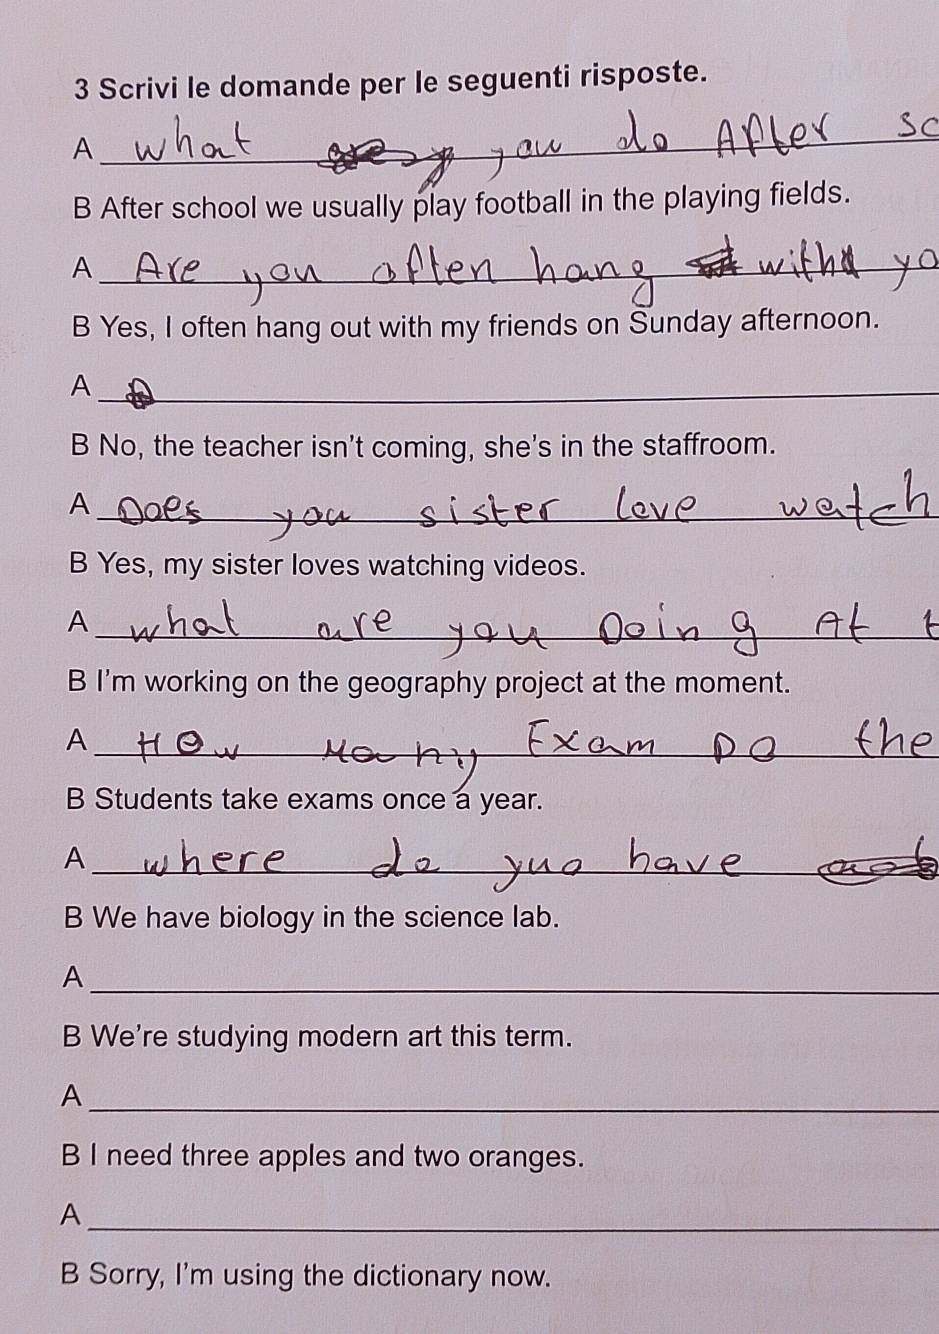 3 Scrivi le domande per le seguenti risposte.
A what you do After sc
B After school we usually play football in the playing fields.
A Are you often hang with yo
B Yes, I often hang out with my friends on Sunday afternoon.
A
B No, the teacher isn't coming, she's in the staffroom.
A Does you sister love watch
B Yes, my sister loves watching videos.
A what are you Doing At t
B I'm working on the geography project at the moment.
A How Many Exam Do the
B Students take exams once a year.
A where do yuo have
B We have biology in the science lab.
A
B We're studying modern art this term.
A
B I need three apples and two oranges.
A
B Sorry, I'm using the dictionary now.